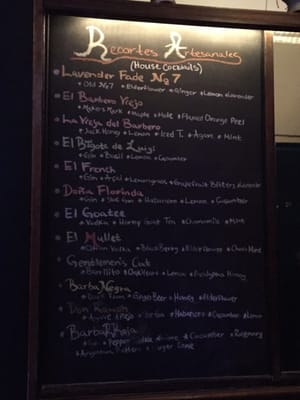 Recortes Artesanales
(House Cocktails)
Lavender Fade No 7
Old No7 Elderflower Ginger Lemon Lavender
El Barbero Viejo
Maker's Mark Maple Mole Flamed Orange Peel
La Vieja del Barbero
Jack Honey Lemon Iced T. Agave Mint
El Bigote de Luigi
Gin Basil Lemon Cucumber
El French
Gin Açai Lemongrass Grapefruit Bitters Lavender
Doña Florinda
Gin Habanero Lemon Cucumber
El Goatee
Vodka Honey Goat Tea Chamomile Mint
El Mullet
Vodka BlueBerry Elderflower
Gentlemen's Cut
Barrilito Lemon Honey
Barba Negra
Rum Ginger Beer Honey Elderflower
Don Ramon
Añejo Habanero Cucumber Lemon
Barba Roja
Gin Pepper Cucumber Rosemary
Bitters Sugar Cane